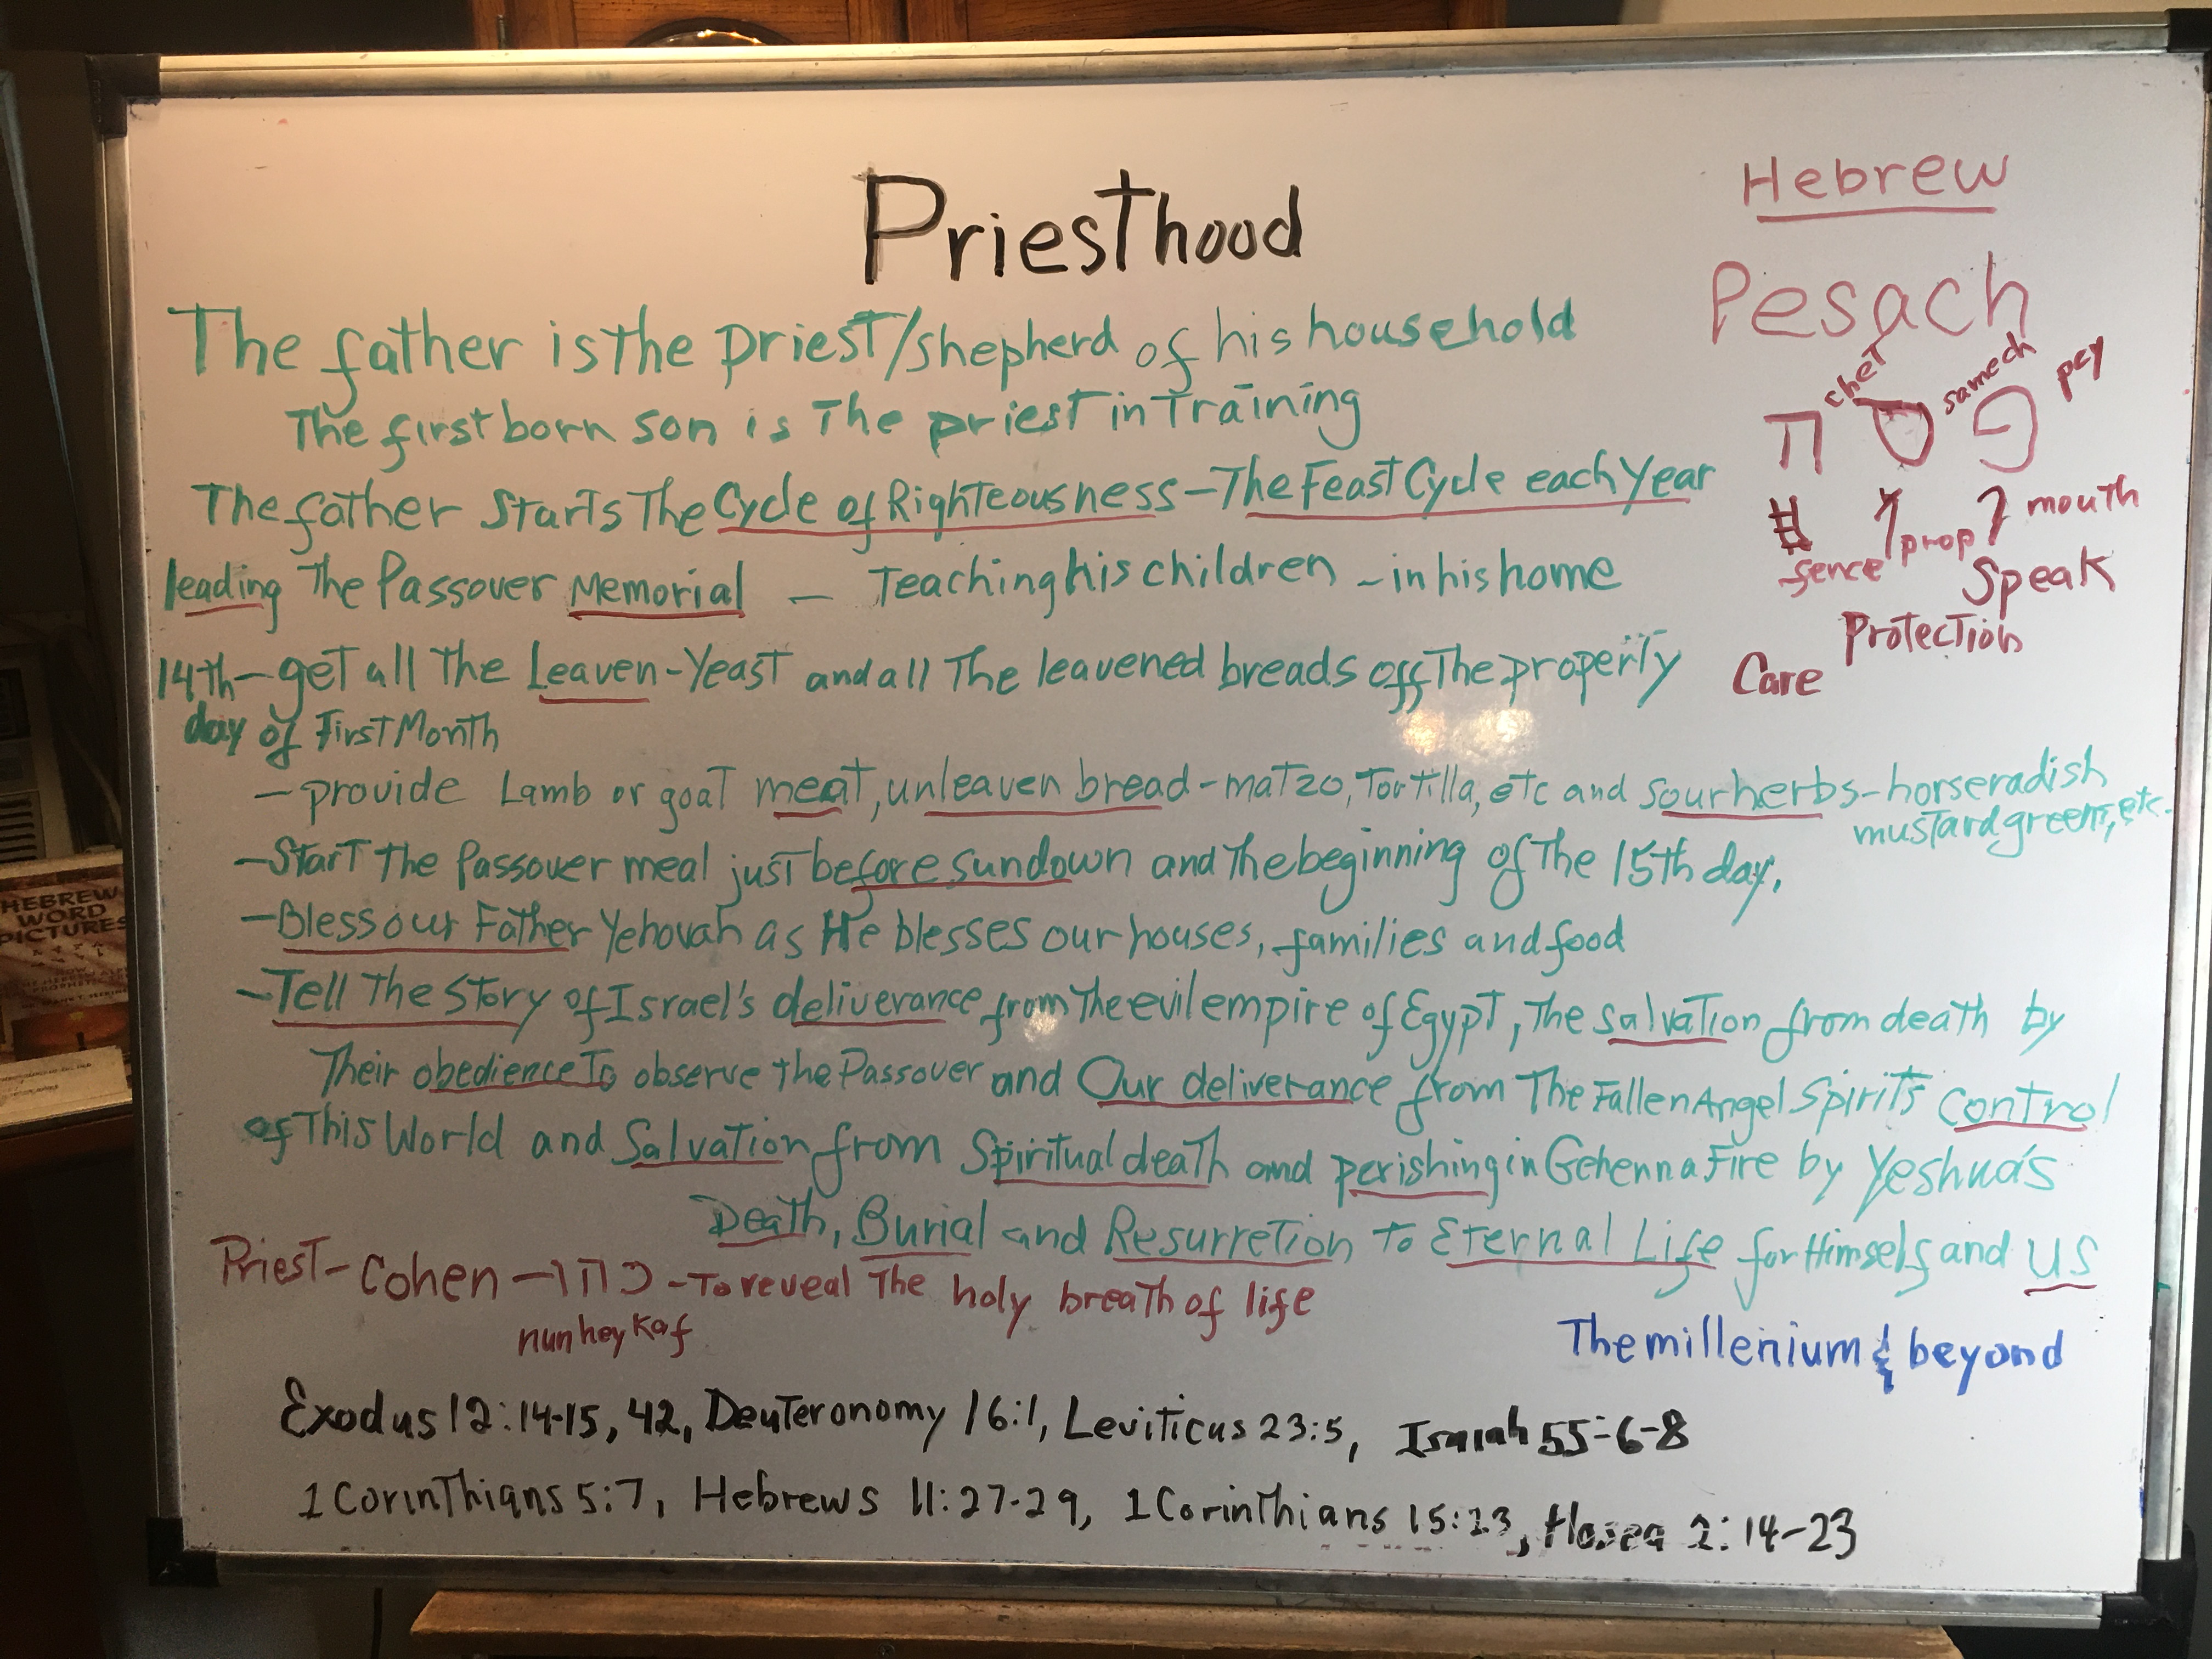 Priesthood
The father is the priest/shepherd of his household
The first born son is The priest in Training
The father Starts The Cycle of Righteousness - The Feast Cycle each Year
leading The Passover Memorial - Teaching his children - in his home
14th - get all The Leaven - Yeast and all The leavened breads off The property
day of First Month
- provide Lamb or goat meat, unleaven bread - matzo, Tortilla, etc and sour herbs - horseradish
mustard greens, etc.
- Start The Passover meal just before sundown and The beginning of The 15th day.
- Bless our Father Yehovah as He blesses our houses, families and food
- Tell The Story of Israel's deliverance from The evil empire of Egypt, The salvation from death by
Their obedience To observe the Passover and Our deliverance from The Fallen Angel Spirits control
of This World and Salvation from Spiritual death and perishing in Gehenna Fire by Yeshua's
Death, Burial and Resurretion To Eternal Life for Himself and US
Priest - Cohen - כהן - To reveal The holy breath of life
nun hey Kaf
The millenium & beyond
Exodus 12:14-15, 42, Deuteronomy 16:1, Leviticus 23:5, Isaiah 55:6-8
1 Corinthians 5:7, Hebrews 11:27-29, 1 Corinthians 15:23, Hosea 2:14-23
Hebrew
Pesach
chet samech pey
פסח
fence prop mouth
Speak
Protection
Care
HEBREW
WORD
PICTURES